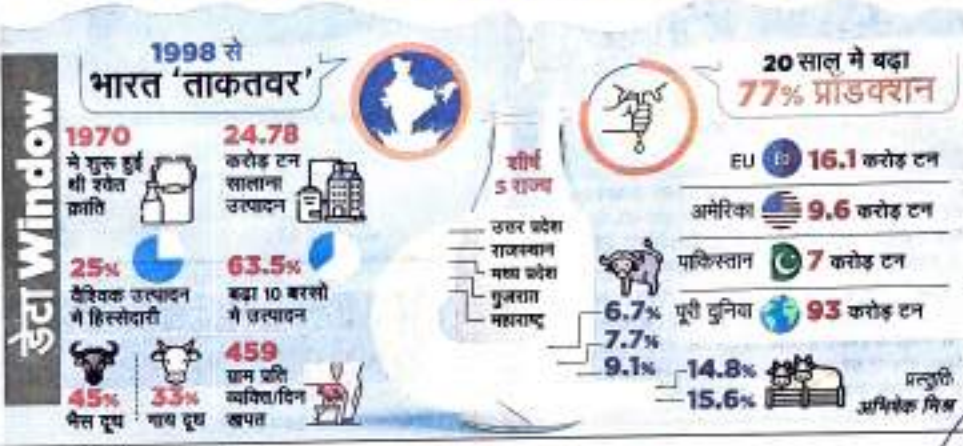 डेटा Window
1998 से
भारत 'ताकतवर'
1970
मे शुरू हुई
थी श्वेत
क्रांति
24.78
करोड़ टन
सालाना
उत्पादन
25%
वैश्विक उत्पादन
मे हिस्सेदारी
63.5%
बढा 10 बरसो
मे उत्पादन
45%
भैंस दूध
33%
गाय दूध
459
ग्राम प्रति
व्यक्ति/दिन
खपत
शीर्ष
5 राज्य
उत्तर प्रदेश
राजस्थान
मध्य प्रदेश
गुजरात
महाराष्ट्र
6.7%
7.7%
9.1%
14.8%
15.6%
20 साल मे बढ़ा
77% प्रॉडक्शन
EU 16.1 करोड़ टन
अमेरिका 9.6 करोड़ टन
पाकिस्तान 7 करोड़ टन
पूरी दुनिया 93 करोड़ टन
प्रस्तुति
अभिषेक मिश्र